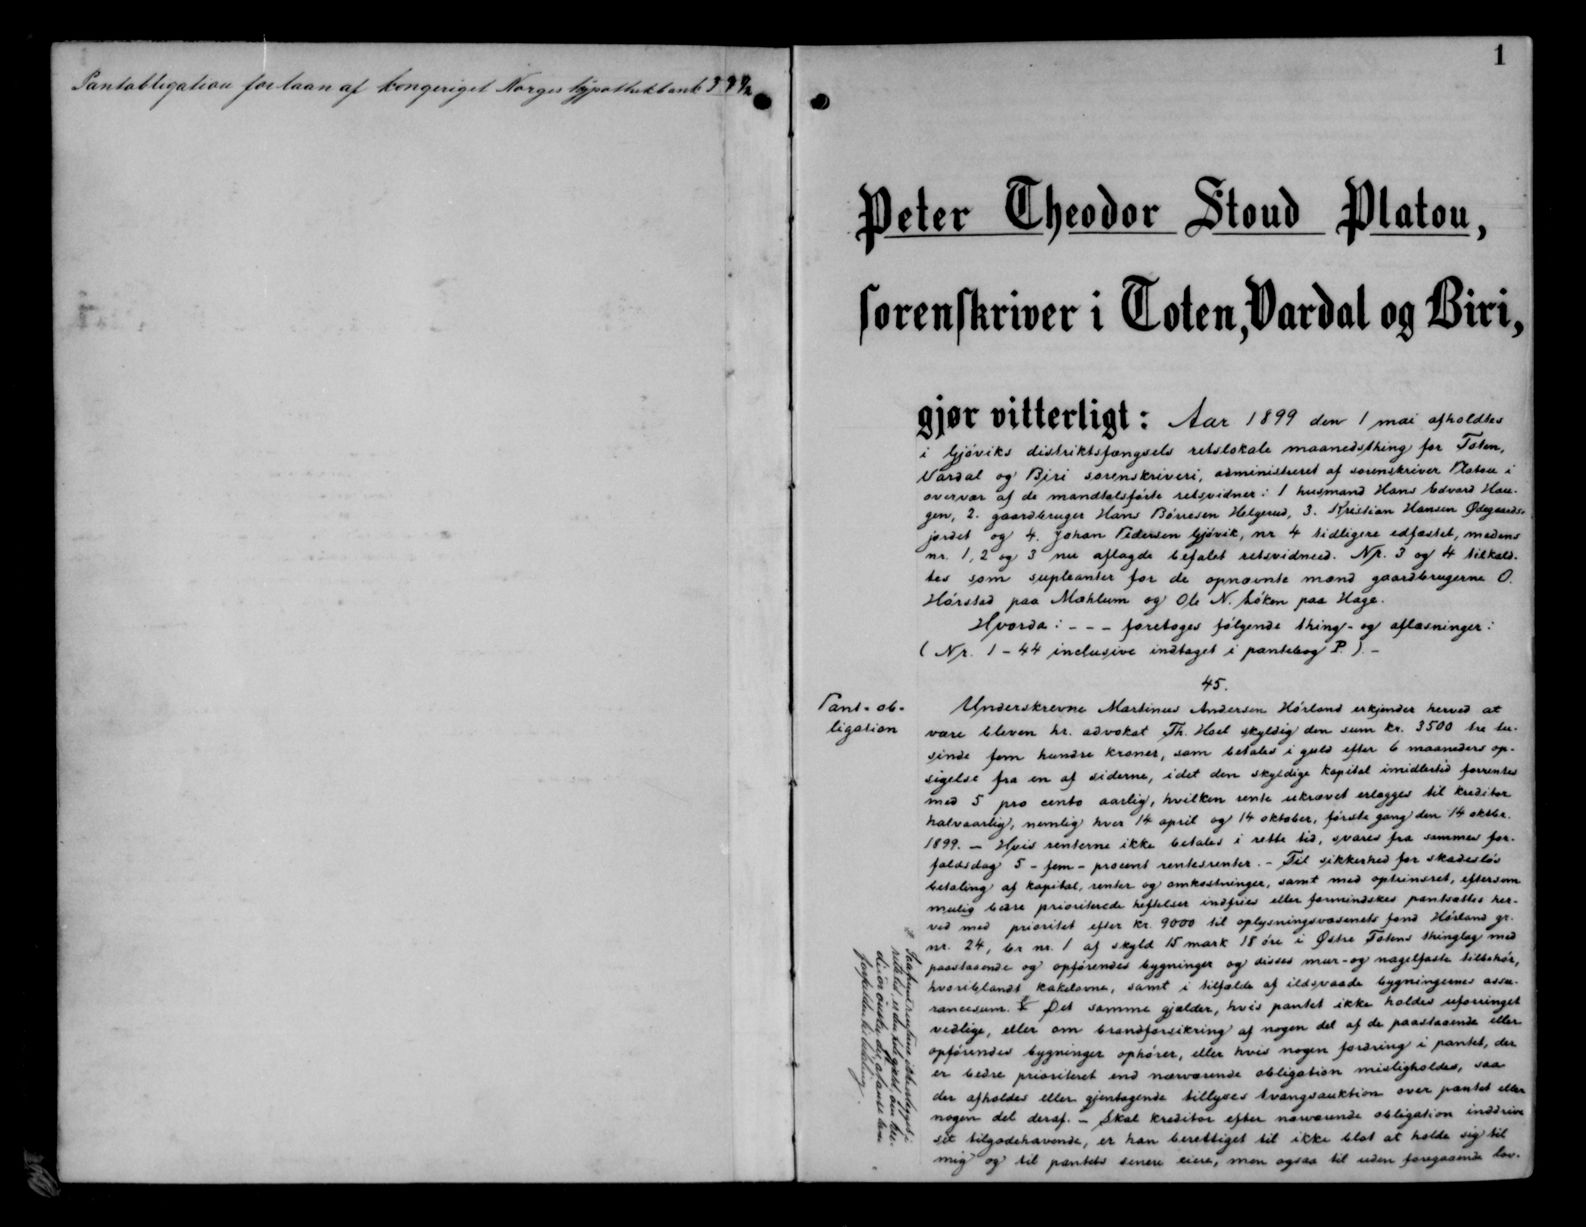 Pantobligation for laan af kongeriget Norges hypothekbank 399/2
1
Peter Theodor Stoud Platou,
sorenskriver i Toten, Vardal og Biri,
gjør vitterligt: Aar 1899 den 1 mai afholdtes
i Gjöviks distriktsfængsels retslokale maanedsthing for Toten,
Vardal og Biri sorenskriveri, administreret af sorenskriver Platou i
overvær af de mandtalsførte retsvidner: 1 husmand Hans Edvard Hau-
gen, 2. gaardbruger Hans Börresen Helgerud, 3. Kristian Hansen Ødegaards-
jordet og 4. Johan Pedersen Gjövik, nr 4 tidligere edfæstet, medens
nr. 1, 2 og 3 nu aflagde befalet retsvidneed. Nr. 3 og 4 tilkald-
tes som supleanter for de opnævnte mænd gaardbrugerne O.
Hörstad paa Mæhlum og Ole N. Löken paa Hage.
Hvorda: - - - foretoges følgende thing- og aflæsninger:
(Nr. 1 - 44 inclusive indtaget i pantebog P.). -
45.
Pant-ob-
ligation
Underskrevne Martinus Andersen Hörland erkjender herved at
være bleven hr. advokat Th. Hoel skyldig den sum kr. 3500 tre tu-
sinde fem hundre kroner, som betales i guld efter 6 maaneders op-
sigelse fra en af siderne, idet den skyldige kapital imidlertid forrentes
med 5 pro cento aarlig, hvilken rente ukrævet erlægges til kreditor
halvaarlig, nemlig hver 14 april og 14 oktober, första gang den 14 oktbr.
1899. - Hvis renterne ikke betales i rette tid, svares fra sammes for-
faldsdag 5 - fem - procent rentesrenter. - Til sikkerhed for skadeslös
betaling af kapital, renter og omkostninger, samt med optrinsret, eftersom
mulig bedre prioriterede heftelser indfries eller formindskes pantsættes her-
ved med prioritet efter kr. 9000 til oplysningsvæsenets fond Hörland gr.
nr. 24, br nr. 1 af skyld 15 mark 18 öre i Østre Totens thinglag med
paastaaende og opførendes bygninger og disses mur- og nagelfaste tilbehör,
hvoriblandt kakelovne, samt i tilfælde af ildsvaade bygningernes assu-
rancesum. Det samme gjælder, hvis pantet ikke holdes uforringet
vedlige, eller om brandforsikring af nogen del af de paastaaende eller
opførendes bygninger ophører, eller hvis nogen fordring i pantet, der
er bedre prioriteret end nærværende obligation misligholdes, saa
der afholdes eller gjentagende tillyses tvangsauktion over pantet eller
nogen del deraf. - Skal kreditor efter nærværende obligation inddrive
sit tilgodehavende, er han berettiget til ikke blot at holde sig til
mig og til pantets senere eiere, men ogsaa til uden foregaaende lov-
rettetid, er den hele gjæld, om kre-
ditor önsker det,
forfalden til betaling.